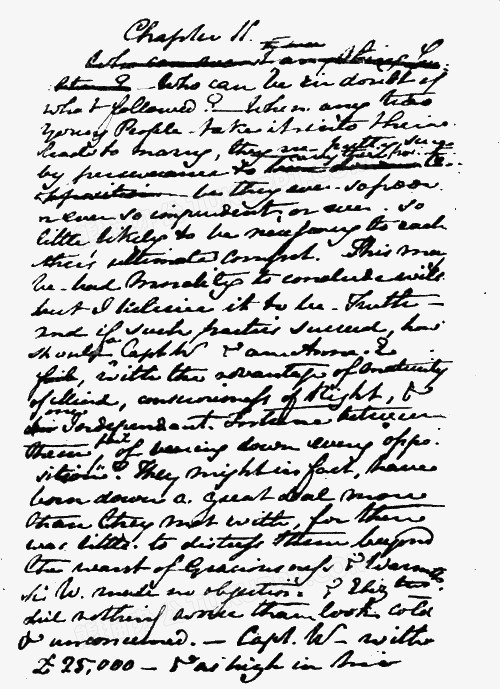 Chapter 11.
Who can be in doubt of
what followed? — When any two
Young People take it into their
heads to marry, they are pretty sure
by perseverance to carry their point
opposition — be they ever so poor
or ever so imprudent, or ever so
little likely to be necessary to each
other's ultimate comfort. This may
be bad Morality to conclude with
but I believe it to be Truth —
and if such parties succeed, how
should a Capt W— & an Anne E—
fail, with the advantage of maturity
of Mind, consciousness of Right, &
one Independant Fortune between
them, fail of bearing down every oppo-
sition? They might in fact, have
born down a great deal more
than they met with, for there
was little to distress them beyond
the want of Graciousness & Warmth.
Sir W. made no objection, & Eliz:th
did nothing worse than look cold
& unconcerned. — Capt. W— with
£ 25,000 — & as high in his